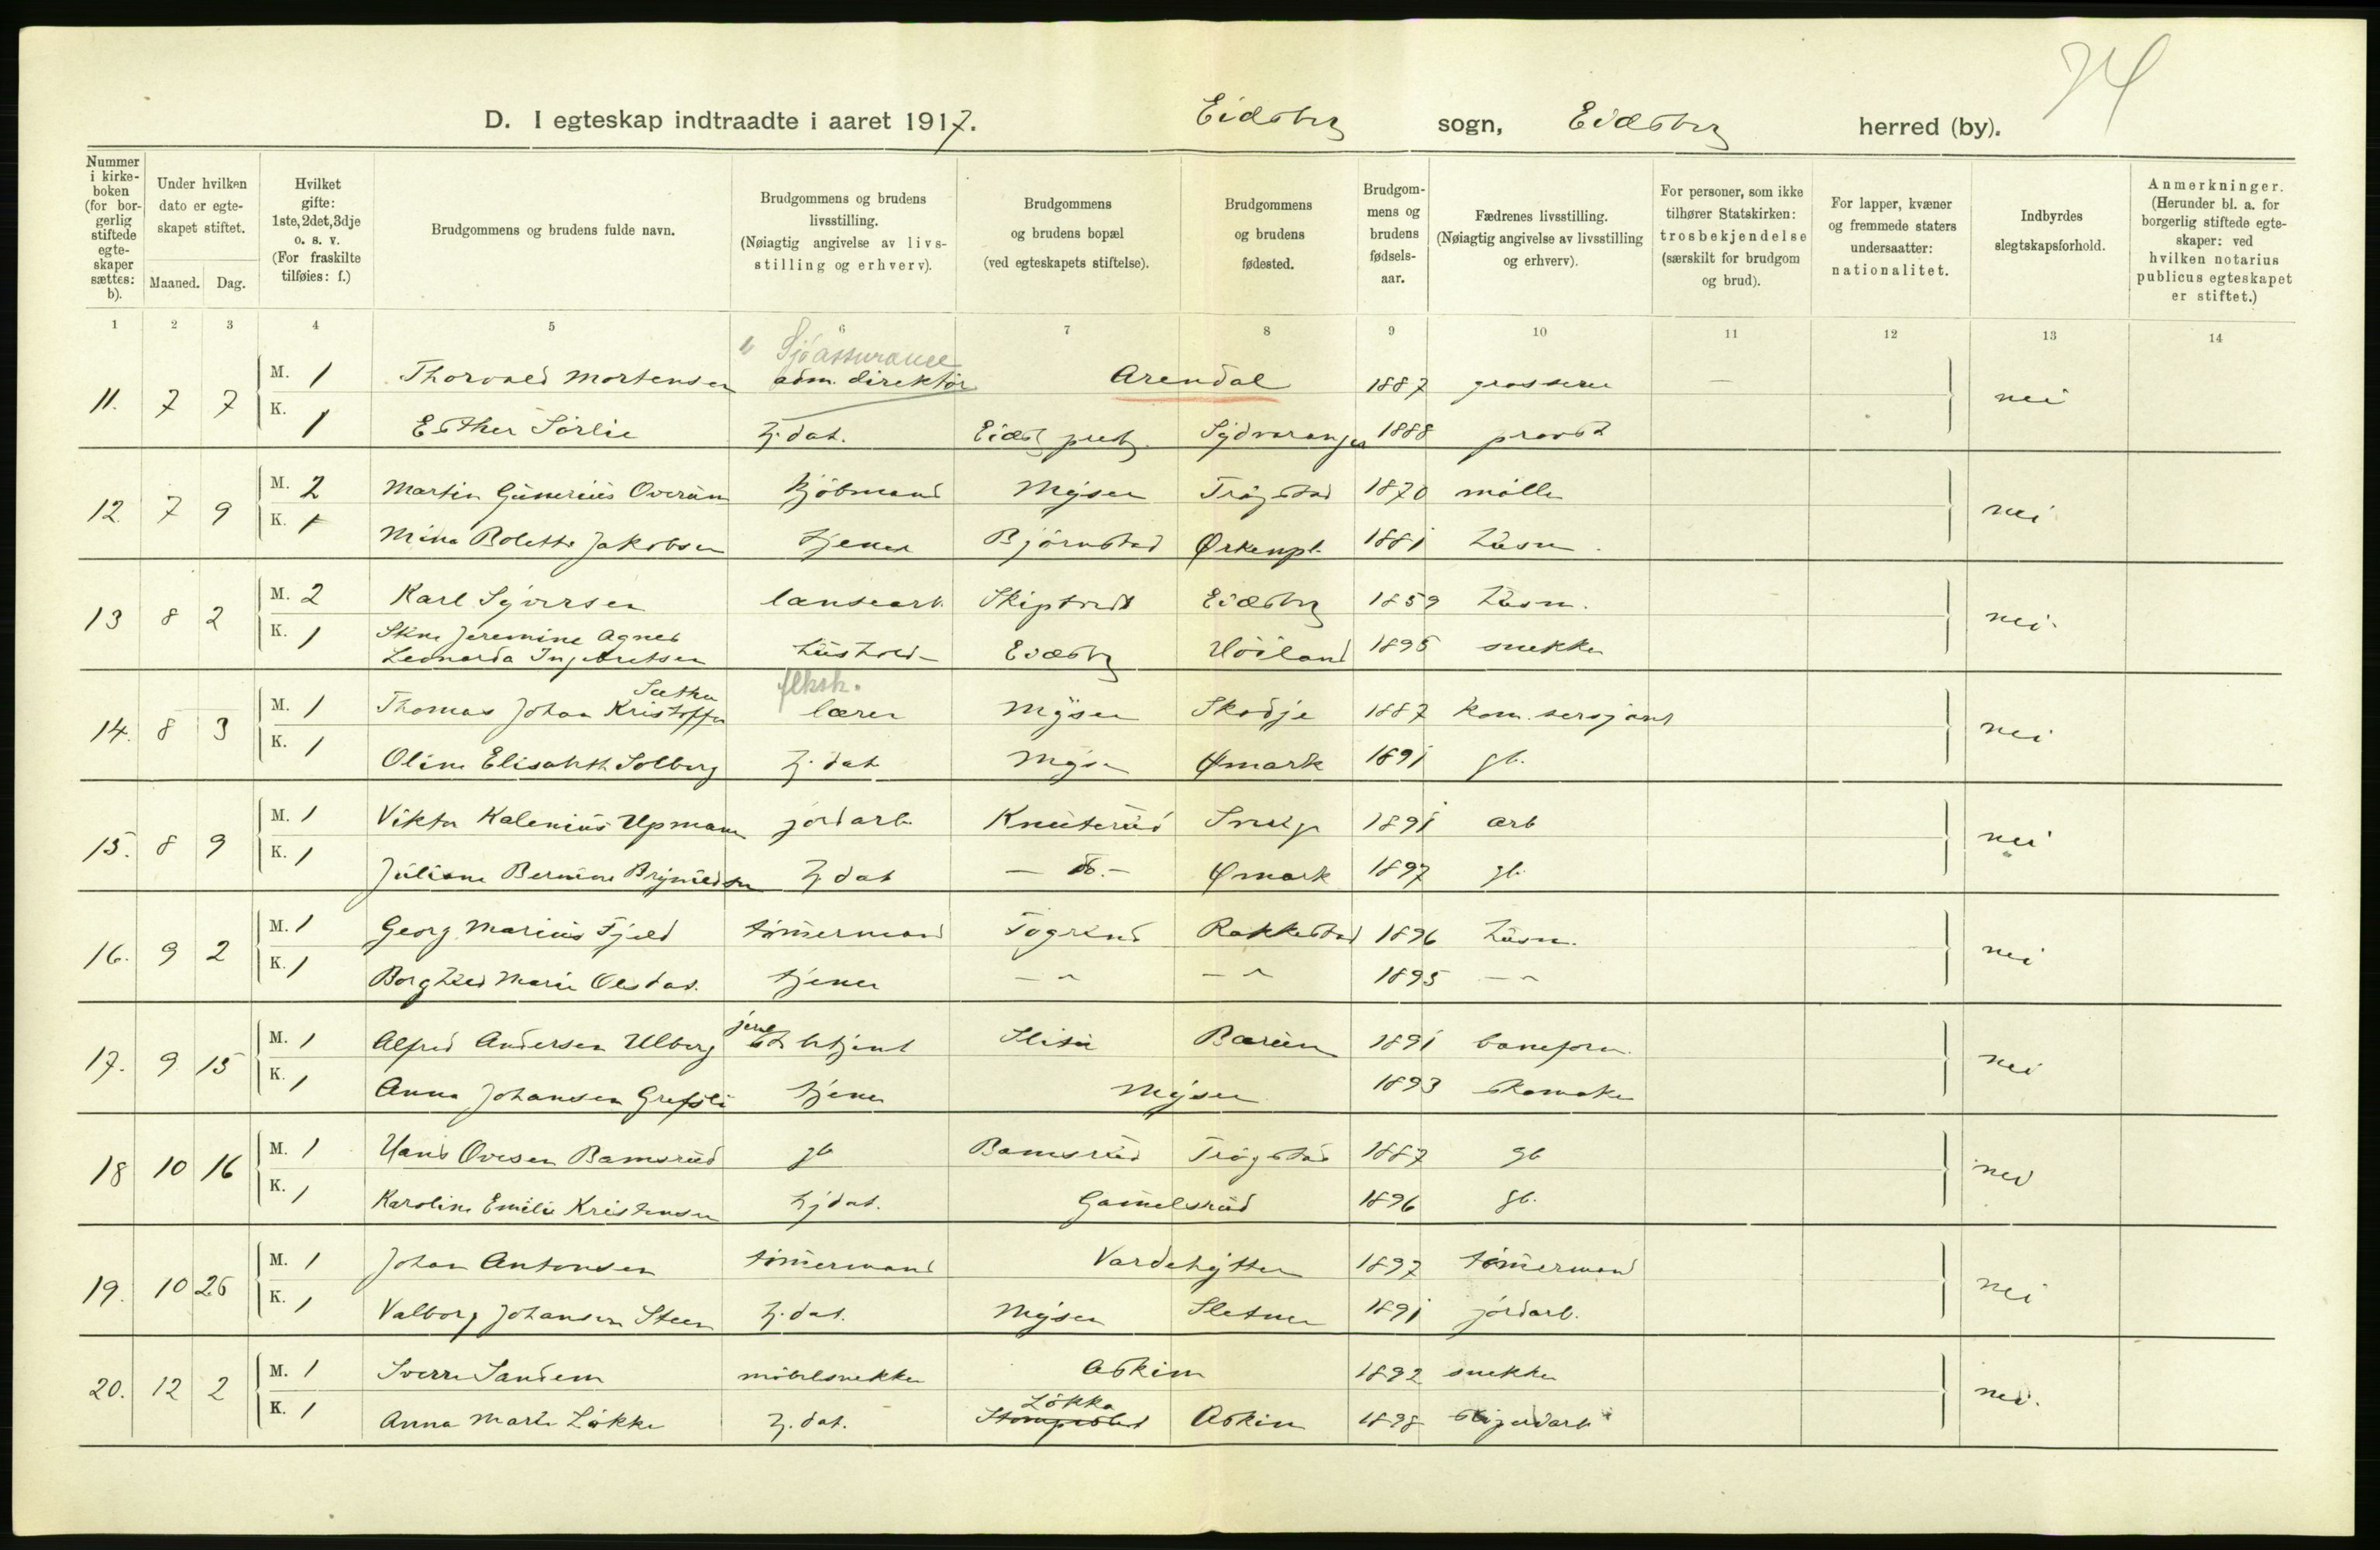 74
D. I egteskap indtraadte i aaret 1917. Eidsberg sogn, Eidsberg herred (by).
Nummer i kirkeboken (for borgerlig stiftede egteskaper sættes: b). Under hvilken dato er egteskapet stiftet. Maaned. Dag. Hvilket gifte: 1ste, 2det, 3dje o. s. v. (For fraskilte tilføies: f.) Brudgommens og brudens fulde navn. Brudgommens og brudens livsstilling. (Nøiagtig angivelse av livsstilling og erhverv). Brudgommens og brudens bopæl (ved egteskapets stiftelse). Brudgommens og brudens fødested. Brudgommens og brudens fødselsaar. Fædrenes livsstilling. (Nøiagtig angivelse av livsstilling og erhverv). For personer, som ikke tilhører Statskirken: trosbekjendelse (særskilt for brudgom og brud). For lapper, kvæner og fremmede staters undersaatter: nationalitet. Indbyrdes slegtskapsforhold. Anmerkninger. (Herunder bl. a. for borgerlig stiftede egteskaper: ved hvilken notarius publicus egteskapet er stiftet.)
1 2 3 4 5 6 7 8 9 10 11 12 13 14
Sjöassurance
11. 7 7 M. 1 Thorvald Mortensen adm. direktör Arendal 1887 grosserer — nei
K. 1 Esther Sörlie hj. dat. Eidsb. prestg. Sydvaranger 1888 provst
12. 7 9 M. 2 Martin Günerius Overün kjöbmand Mysen Trögstad 1870 möller nei
K. 1 Mina Bolette Jakobsen tjener Björnstad Ørkenpl. 1881 husm.
13 8 2 M. 2 Karl Syversen landearb. Skiptvedt Eidsberg 1859 husm. nei
K. 1 Stine Jeremine Agnes
Leonarda Ingebretsen hüshold. Eidsberg Höiland 1895 snekker
flksk.
Sæther
14. 8 3 M. 1 Thomas Johan Kristoffer lærer Mysen Skodje 1887 kom. sersjant nei
K. 1 Oline Elisabeth Solberg hj. dat Mysen Ømark 1891 gb.
15. 8 9 M. 1 Viktor Kalenius Upmann jordarb. Knüterüd 1891 arb nei
K. 1 Juliane Bernine Brynildsen hj dat — do. — Ømark 1897 gb.
16. 9 2 M. 1 Georg Marius Fjeld tömermand Togrend Rakkestad 1896 husm. nei
K. 1 Borghild Marie Olsdat. tjener — " — " 1895 — "
jern
17. 9 15 M. 1 Alfred Andersen Ulberg st. betjent Slitu Bærüm 1891 baneform. nei
K. 1 Anna Johansen Grefsli tjener Mysen 1893 skomaker
18 10 16 M. 1 Hans Ovesen Bamsrüd gb Bamsrüd Trögstad 1887 gb nei
K. 1 Karoline Emilie Kristensen hj dat. Gamelsrüd 1896 gb.
19. 10 26 M. 1 Johan Antonsen tömermand Vardehytten 1897 tömermand nei
K. 1 Valborg Johansen Steen hj. dat. Mysen Sletner 1891 jordarb.
20. 12 2 M. 1 Sverre Sandem möbelsnekker Askim 1892 snekker nei.
Lökka
K. 1 Anna Marie Løkke hj. dat. Askim 1898